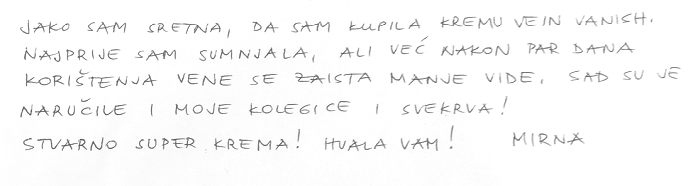 JAKO SAM SRETNA, DA SAM KUPILA KREMU VEIN VANISH.
NAJPRIJE SAM SUMNJALA, ALI VEĆ NAKON PAR DANA
KORIŠTENJA VENE SE ZAISTA MANJE VIDE. SAD SU JE
NARUČILE I MOJE KOLEGICE I SVEKRVA!
STVARNO SUPER KREMA! HVALA VAM! MIRNA